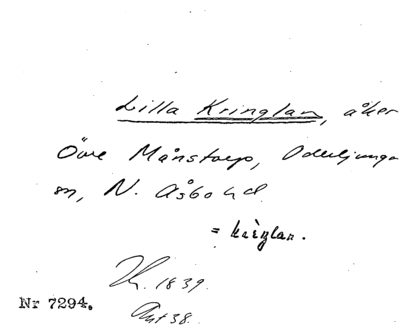 Lilla Kringlan, åker
Övre Månstorp, Oderljunga
sn, N. Åsbo hd.
= kringlan.
1839.
Nr 7294.
38.